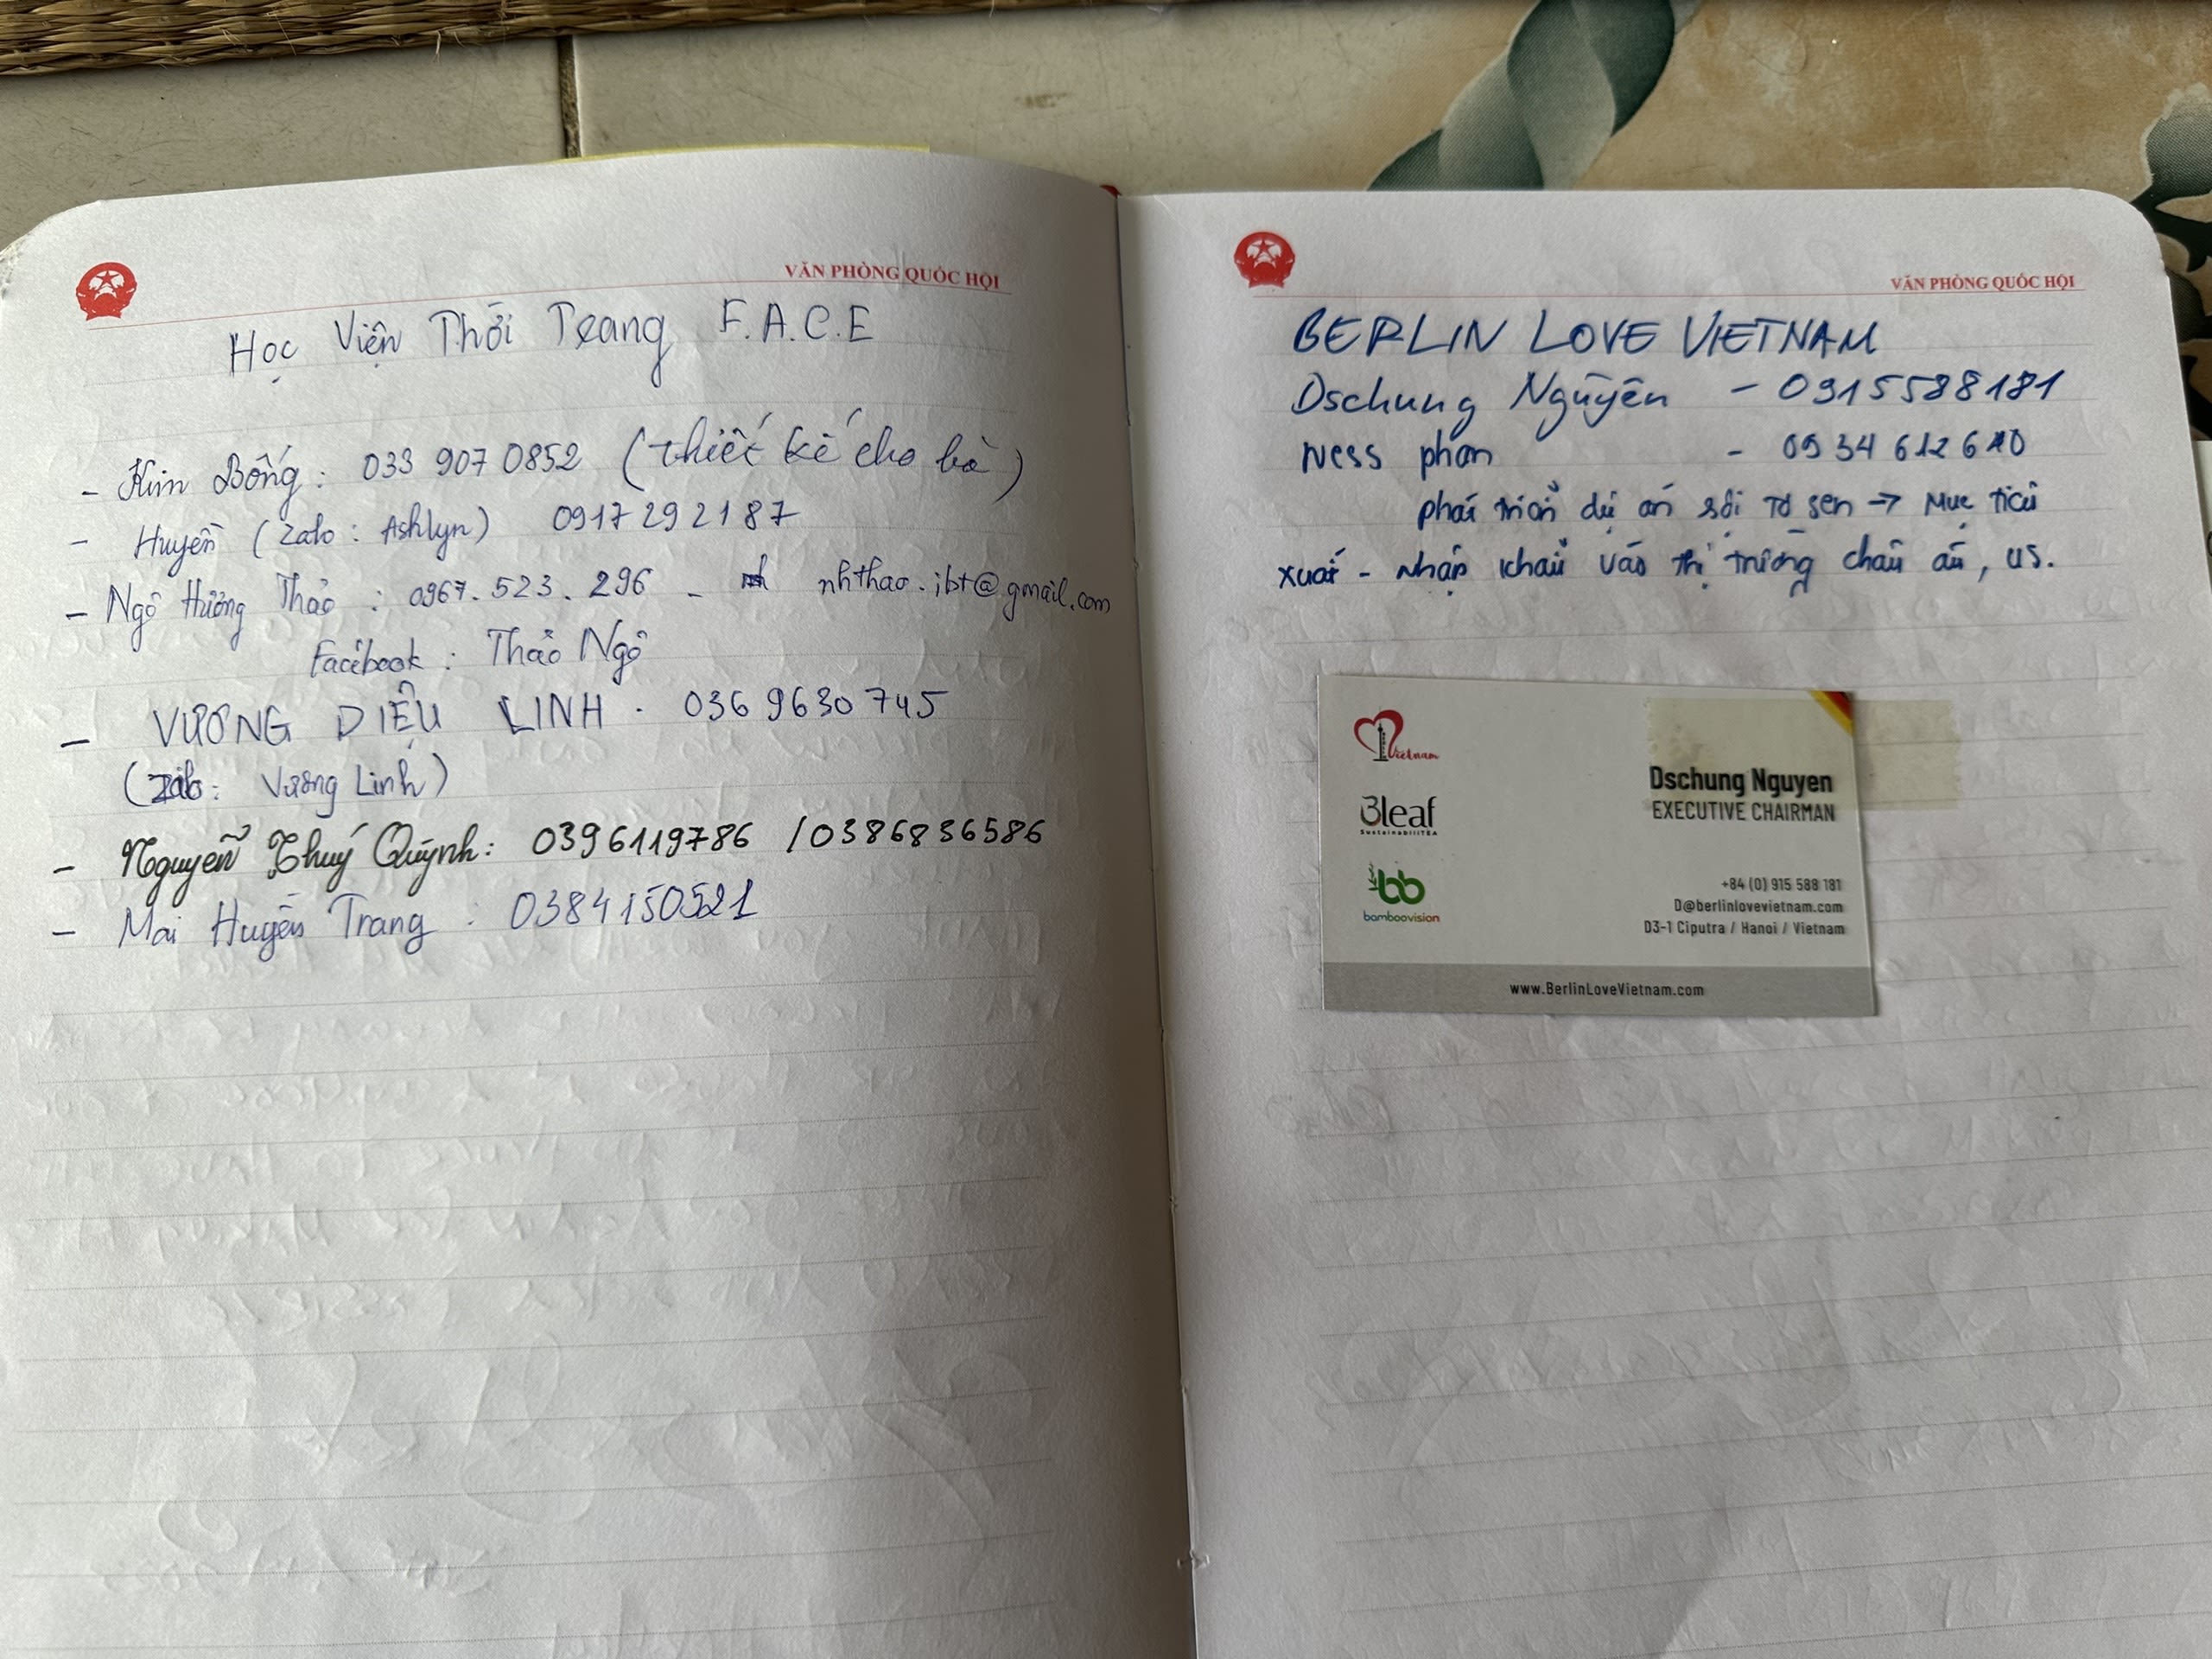 VĂN PHÒNG QUỐC HỘI
Học Viện Thời Trang F.A.C.E
- Kim Bống : 033 907 0852 (thiết kế cho bà)
- Huyền (Zalo : Ashlyn) 0917292187
- Ngô Hương Thảo : 0967.523.296 - nhthao.ibt@gmail.com
Facebook : Thảo Ngô
- VƯƠNG DIỆU LINH . 0369630745
(Zalo: Vương Linh)
- Nguyễn Thuý Quỳnh: 0396119786 /0386836586
- Mai Huyền Trang : 0384150521
VĂN PHÒNG QUỐC HỘI
BERLIN LOVE VIETNAM
Dschung Nguyên - 0915588181
Ness phan - 0934 612 610
phát triển dự án sợi tơ sen → Mục tiêu
xuất - nhập khẩu vào thị trường châu âu, US.
Vietnam
3leaf
SustainabiliTEA
bb
bamboovision
Dschung Nguyen
EXECUTIVE CHAIRMAN
+84 (0) 915 588 181
D@berlinlovevietnam.com
D3-1 Ciputra / Hanoi / Vietnam
www.BerlinLoveVietnam.com